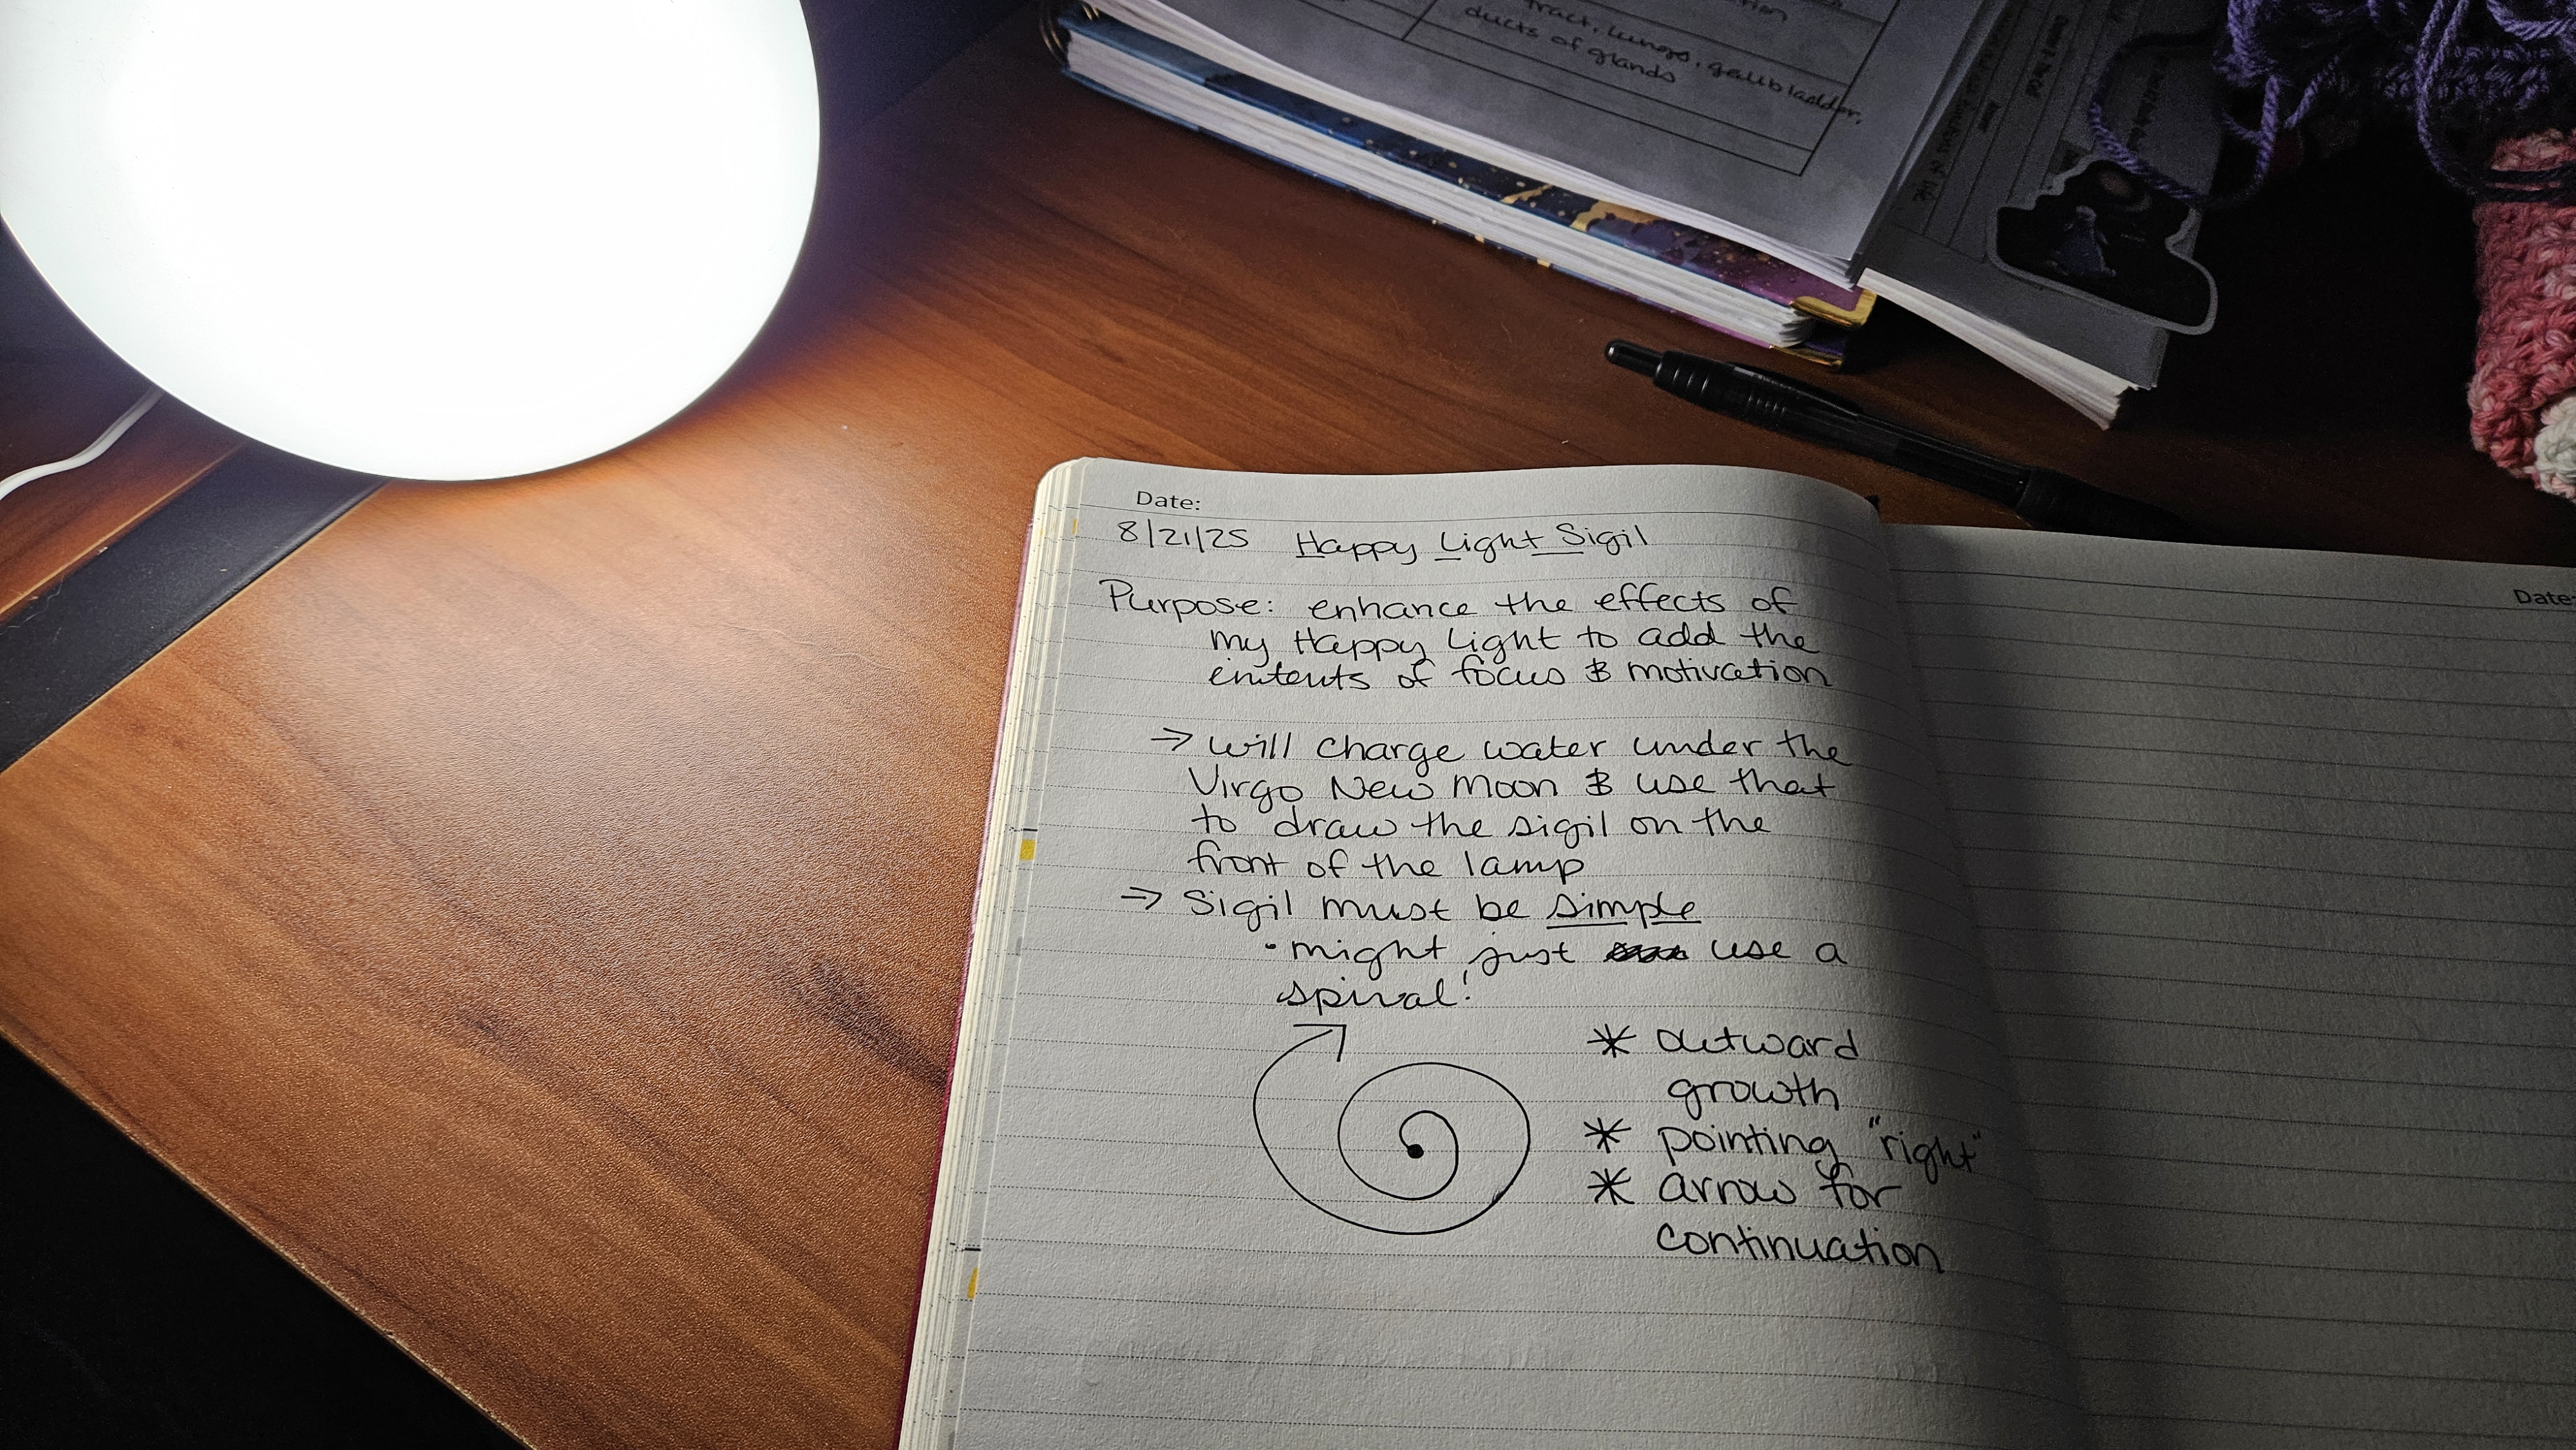 tract, lungs, gallbladder,
ducts of glands
Date:
8/21/25 Happy Light Sigil
Purpose: enhance the effects of
my Happy Light to add the
intents of focus & motivation
→ will charge water under the
Virgo New Moon & use that
to draw the sigil on the
front of the lamp
→ Sigil must be simple
• might just use a
spiral!
* outward
growth
* pointing "right"
* arrow for
continuation
Date: